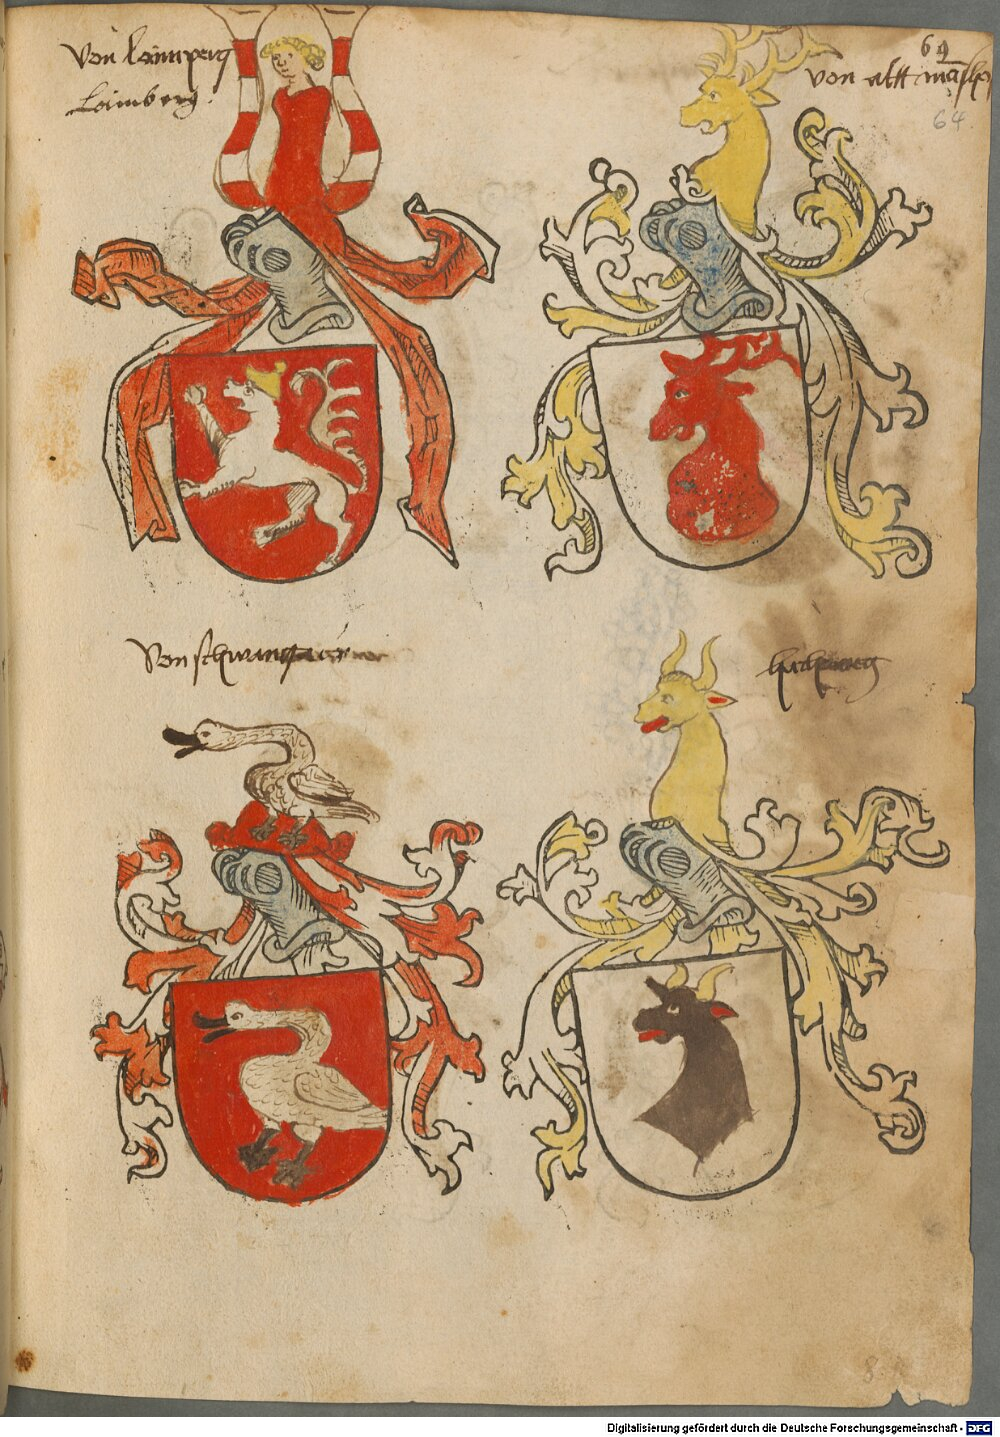 Von Laimperg
Laimberg.
69
von altt
64
Von schwangaw
8
Digitalisierung gefördert durch die Deutsche Forschungsgemeinschaft - DFG